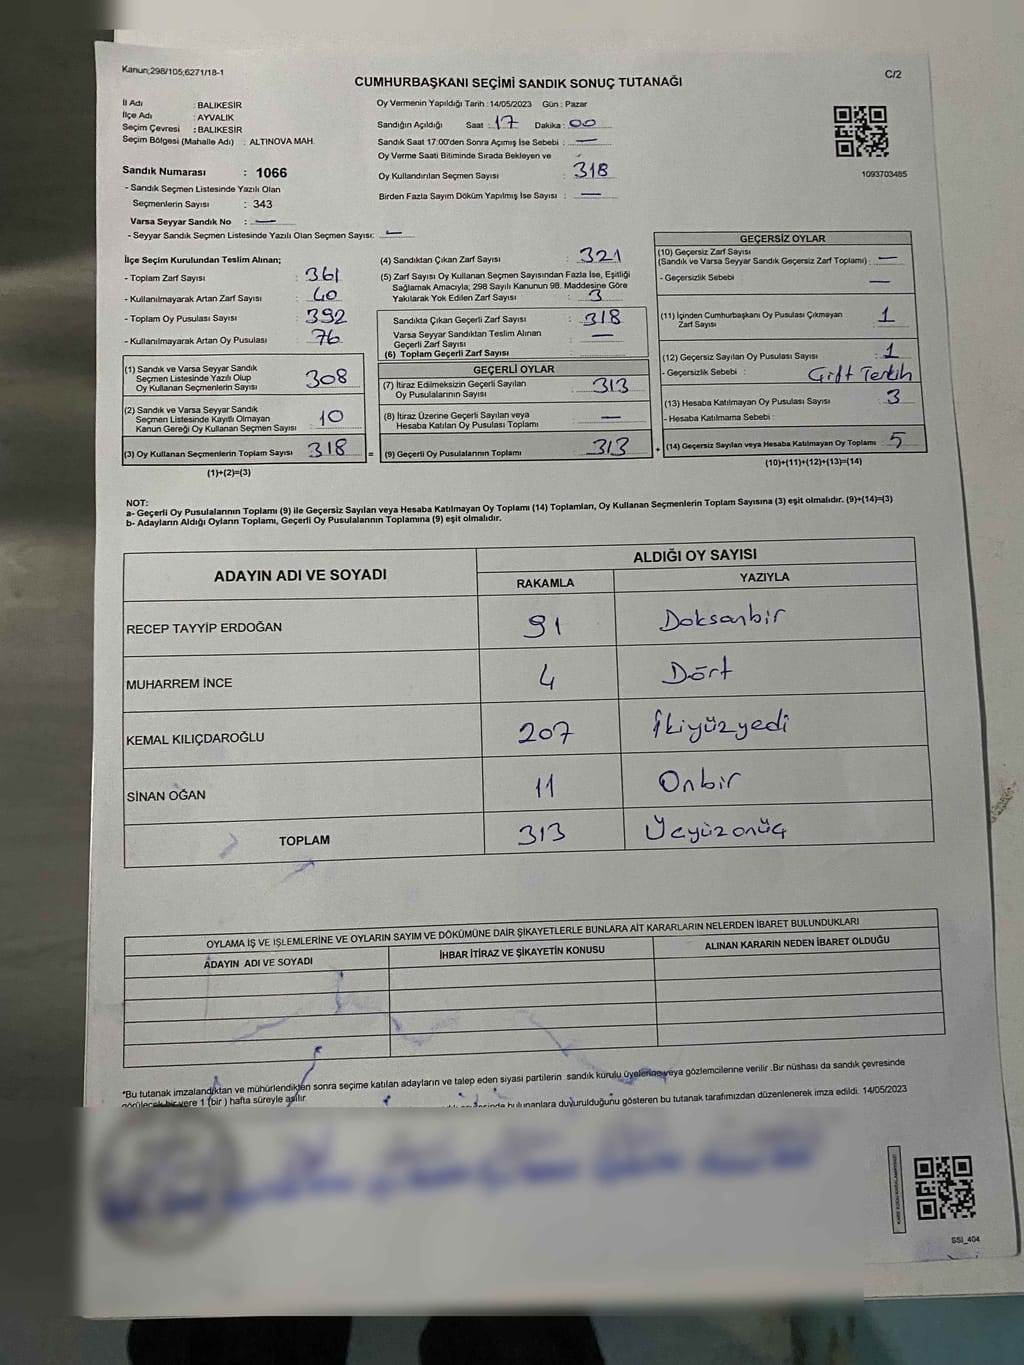 Kanun;298/105;6271/18-1
C/2
CUMHURBAŞKANI SEÇİMİ SANDIK SONUÇ TUTANAĞI
İl Adı : BALIKESİR
İlçe Adı : AYVALIK
Seçim Çevresi : BALIKESİR
Seçim Bölgesi (Mahalle Adı) : ALTINOVA MAH.
Oy Vermenin Yapıldığı Tarih : 14/05/2023 Gün : Pazar
Sandığın Açıldığı Saat : 17 Dakika : 00
Sandık Saat 17:00'den Sonra Açımış İse Sebebi : —
Oy Verme Saati Bitiminde Sırada Bekleyen ve
Oy Kullandırılan Seçmen Sayısı : 318
Birden Fazla Sayım Döküm Yapılmış İse Sayısı : —
1093703485
Sandık Numarası : 1066
- Sandık Seçmen Listesinde Yazılı Olan
Seçmenlerin Sayısı : 343
Varsa Seyyar Sandık No : —
- Seyyar Sandık Seçmen Listesinde Yazılı Olan Seçmen Sayısı: —
İlçe Seçim Kurulundan Teslim Alınan;
- Toplam Zarf Sayısı : 361
- Kullanılmayarak Artan Zarf Sayısı : 40
- Toplam Oy Pusulası Sayısı : 392
- Kullanılmayarak Artan Oy Pusulası : 76
(1) Sandık ve Varsa Seyyar Sandık
Seçmen Listesinde Yazılı Olup
Oy Kullanan Seçmenlerin Sayısı 308
(2) Sandık ve Varsa Seyyar Sandık
Seçmen Listesinde Kayıtlı Olmayan
Kanun Gereği Oy Kullanan Seçmen Sayısı : 10
(3) Oy Kullanan Seçmenlerin Toplam Sayısı 318 =
(1)+(2)=(3)
(4) Sandıktan Çıkan Zarf Sayısı : 321
(5) Zarf Sayısı Oy Kullanan Seçmen Sayısından Fazla İse, Eşitliği
Sağlamak Amacıyla; 298 Sayılı Kanunun 98. Maddesine Göre
Yakılarak Yok Edilen Zarf Sayısı : 3
Sandıkta Çıkan Geçerli Zarf Sayısı : 318
Varsa Seyyar Sandıktan Teslim Alınan
Geçerli Zarf Sayısı : —
(6) Toplam Geçerli Zarf Sayısı :
GEÇERLİ OYLAR
(7) İtiraz Edilmeksizin Geçerli Sayılan
Oy Pusulalarının Sayısı : 313
(8) İtiraz Üzerine Geçerli Sayılan veya
Hesaba Katılan Oy Pusulası Toplamı : —
(9) Geçerli Oy Pusulalarının Toplamı 313 +
GEÇERSİZ OYLAR
(10) Geçersiz Zarf Sayısı
(Sandık ve Varsa Seyyar Sandık Geçersiz Zarf Toplamı) : —
- Geçersizlik Sebebi : —
(11) İçinden Cumhurbaşkanı Oy Pusulası Çıkmayan
Zarf Sayısı : 1
(12) Geçersiz Sayılan Oy Pusulası Sayısı : 1
- Geçersizlik Sebebi : Çift Tercih
(13) Hesaba Katılmayan Oy Pusulası Sayısı : 3
- Hesaba Katılmama Sebebi :
(14) Geçersiz Sayılan veya Hesaba Katılmayan Oy Toplamı : 5
(10)+(11)+(12)+(13)=(14)
NOT:
a- Geçerli Oy Pusulalarının Toplamı (9) ile Geçersiz Sayılan veya Hesaba Katılmayan Oy Toplamı (14) Toplamları, Oy Kullanan Seçmenlerin Toplam Sayısına (3) eşit olmalıdır. (9)+(14)=(3)
b- Adayların Aldığı Oyların Toplamı, Geçerli Oy Pusulalarının Toplamına (9) eşit olmalıdır.
ADAYIN ADI VE SOYADI
ALDIĞI OY SAYISI
RAKAMLA YAZIYLA
RECEP TAYYİP ERDOĞAN 91 Doksanbir
MUHARREM İNCE 4 Dört
KEMAL KILIÇDAROĞLU 207 İkiyüzyedi
SİNAN OĞAN 11 Onbir
TOPLAM 313 Üçyüzonüç
OYLAMA İŞ VE İŞLEMLERİNE VE OYLARIN SAYIM VE DÖKÜMÜNE DAİR ŞİKAYETLERLE BUNLARA AİT KARARLARIN NELERDEN İBARET BULUNDUKLARI
ADAYIN ADI VE SOYADI İHBAR İTİRAZ VE ŞİKAYETİN KONUSU ALINAN KARARIN NEDEN İBARET OLDUĞU
*Bu tutanak imzalandıktan ve mühürlendikten sonra seçime katılan adayların ve talep eden siyasi partilerin sandık kurulu üyelerine veya gözlemcilerine verilir .Bir nüshası da sandık çevresinde
görülecek bir yere 1 (bir ) hafta süreyle asılır
bulunanlara duyurulduğunu gösteren bu tutanak tarafımızdan düzenlenerek imza edildi. 14/05/2023
SSİ_404